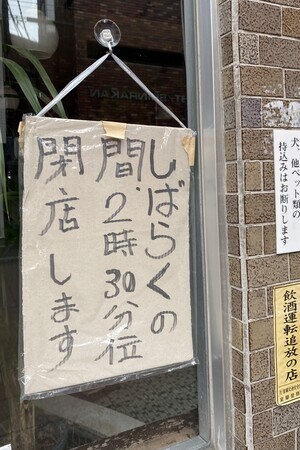 しばらくの
間、2時30分位
閉店します
犬、他ペット類の
持込みはお断りします
飲酒運転追放の店